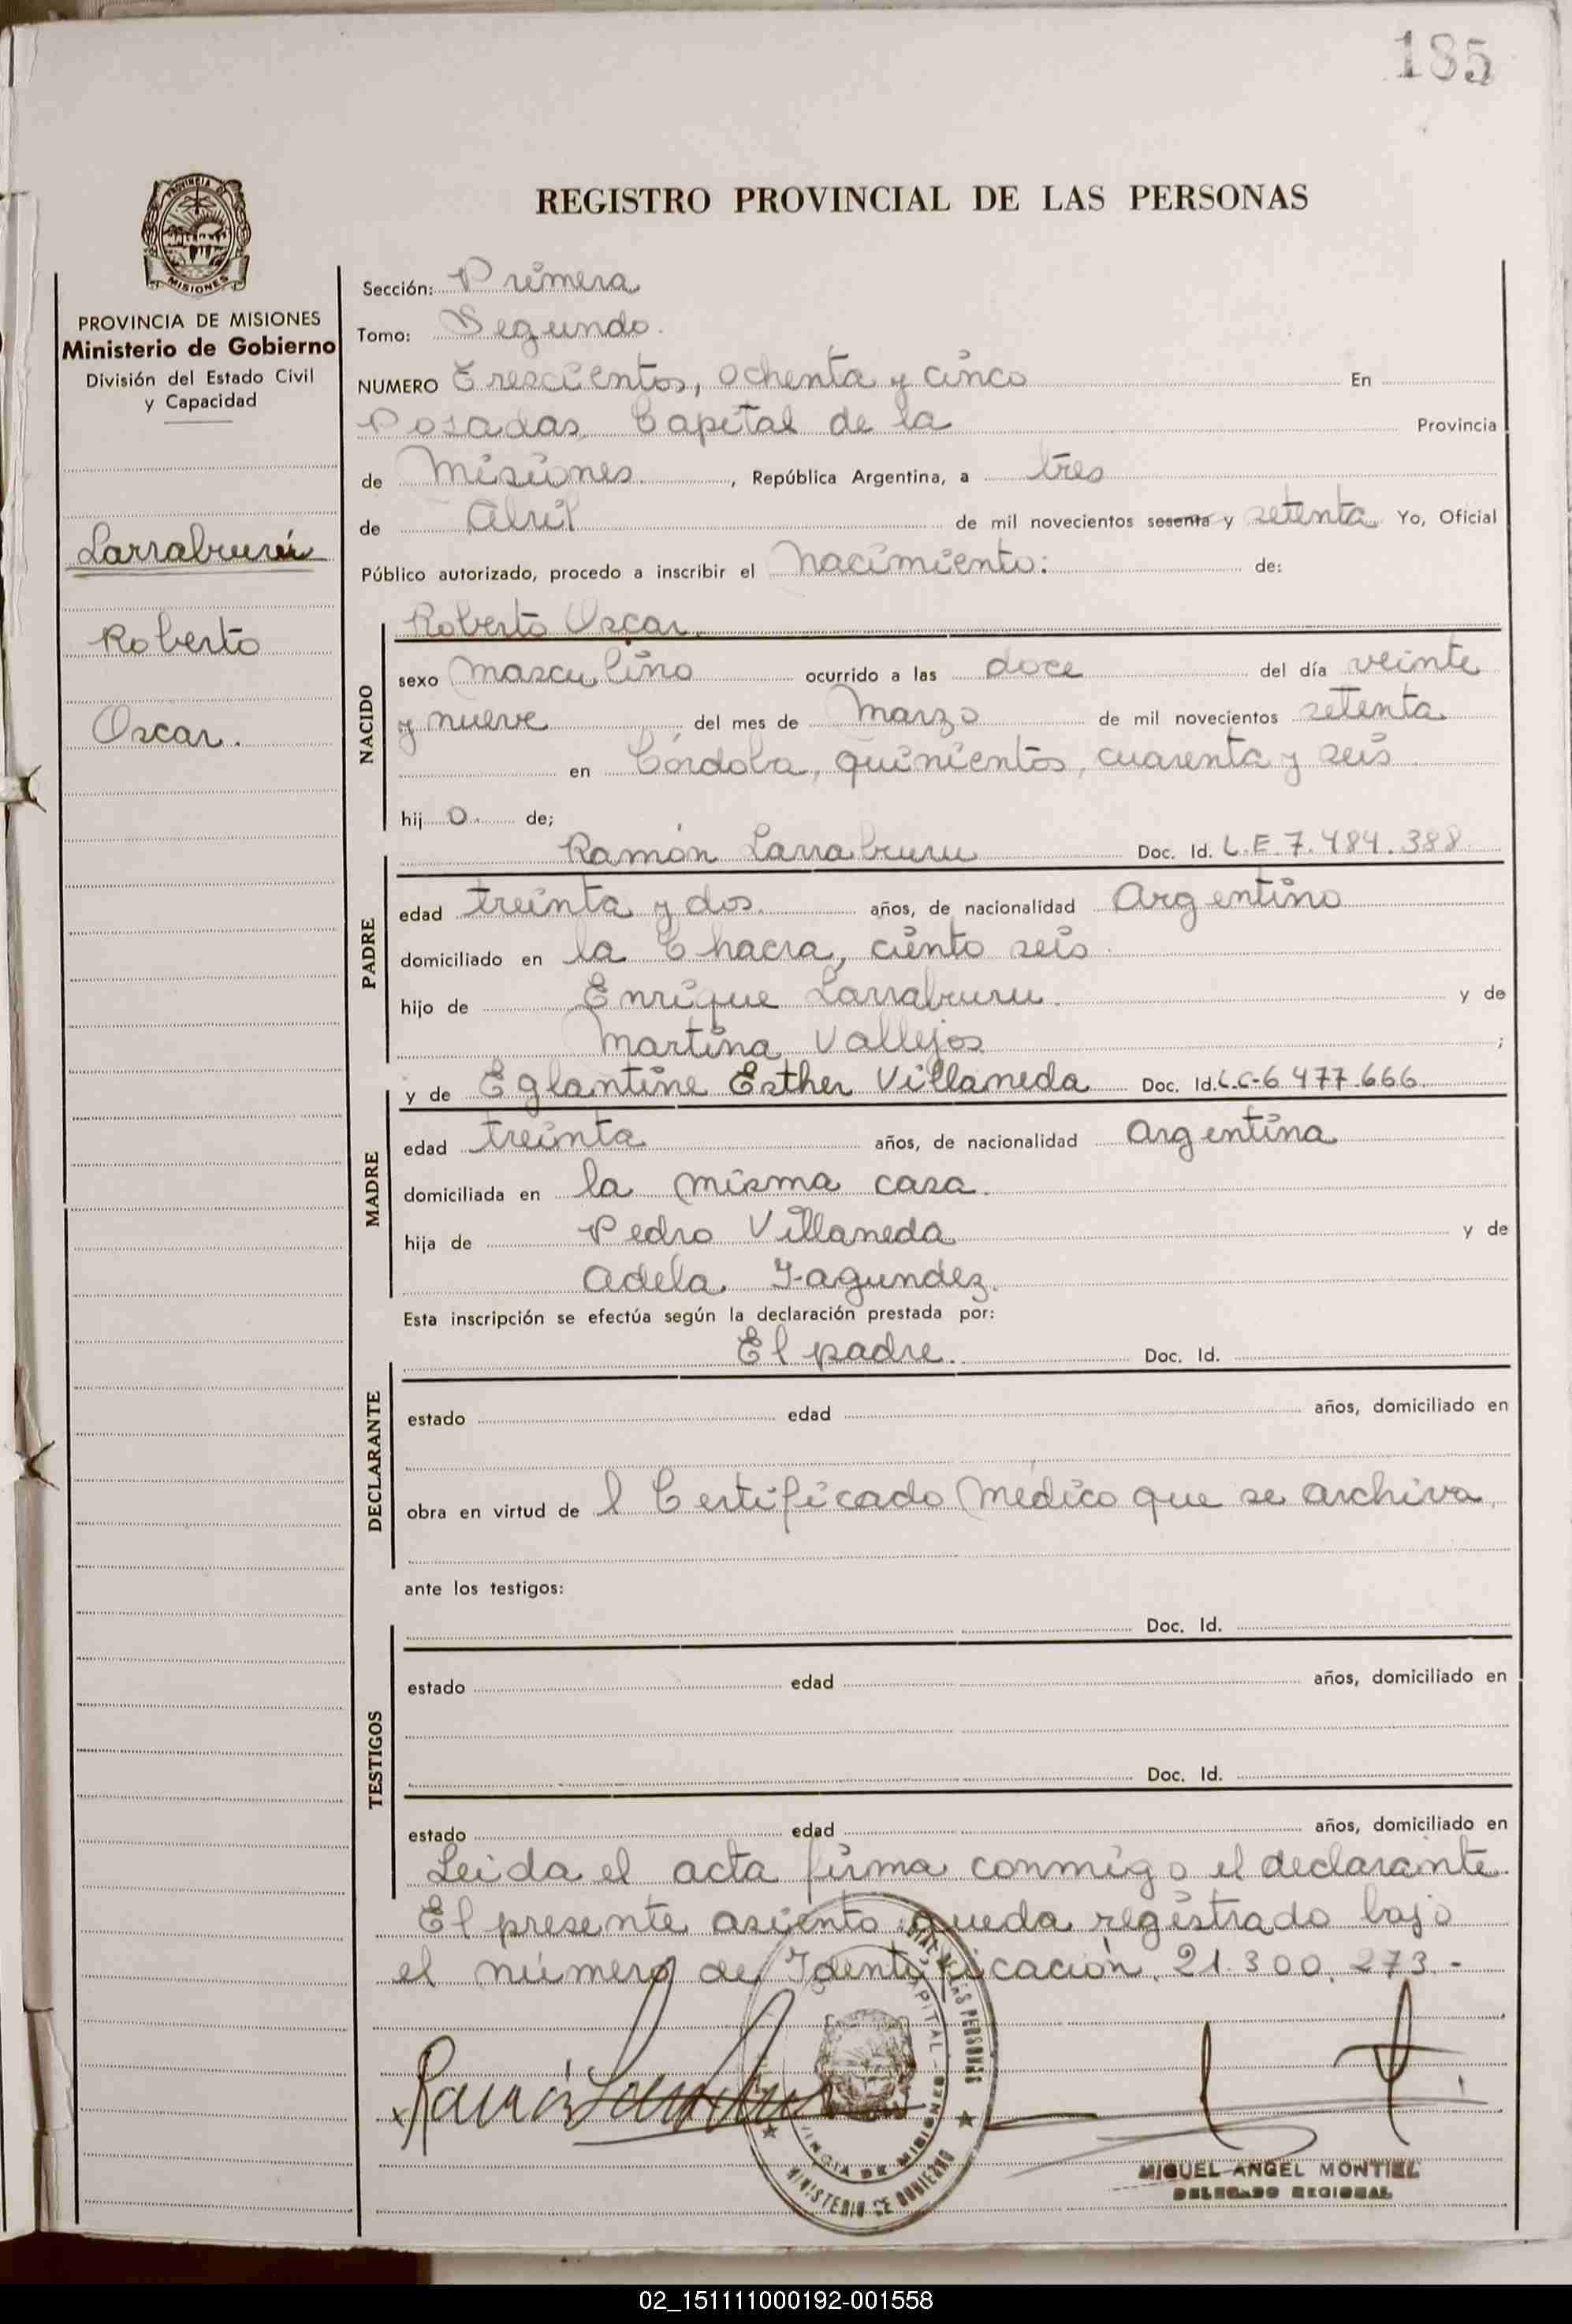 185
MISIONES
PROVINCIA DE MISIONES
Ministerio de Gobierno
División del Estado Civil
y Capacidad
Larraburu
Roberto
Oscar.
REGISTRO PROVINCIAL DE LAS PERSONAS
Sección: Primera
Tomo: Segundo.
NUMERO Trescientos, ochenta y cinco En
Posadas, Capital de la Provincia
de Misiones, República Argentina, a tres
de Abril de mil novecientos sesenta y setenta Yo, Oficial
Público autorizado, procedo a inscribir el Nacimiento: de:
NACIDO
Roberto Oscar.
sexo masculino ocurrido a las doce del día veinte
y nueve del mes de Marzo de mil novecientos setenta
en Córdoba, quinientos, cuarenta y seis.
hij o. de;
PADRE
Ramón Larraburu Doc. Id. L.E. 7.484.388
edad treinta y dos. años, de nacionalidad Argentino
domiciliado en la Chacra, ciento seis
hijo de Enrique Larraburu. y de
Martina Vallejos ;
MADRE
y de Eglantine Esther Villaneda Doc. Id. L.C-6 477.666
edad treinta años, de nacionalidad Argentina
domiciliada en la misma casa.
hija de Pedro Villaneda y de
Adela Fagundez.
Esta inscripción se efectúa según la declaración prestada por:
DECLARANTE
El padre. Doc. Id.
estado edad años, domiciliado en
obra en virtud de l Certificado Médico que se archiva
ante los testigos:
TESTIGOS
Doc. Id.
estado edad años, domiciliado en
Doc. Id.
estado edad años, domiciliado en
Leida el acta firma conmigo el declarante.
El presente asiento queda registrado bajo
el número de Identificación, 21.300.273.-
Ramón Larraburu
DE LAS PERSONAS
CAPITAL
DE MISIONES
MINISTERIO DE GOBIERNO
MIGUEL ANGEL MONTIEL
DELEGADO REGIONAL
02_151111000192-001558